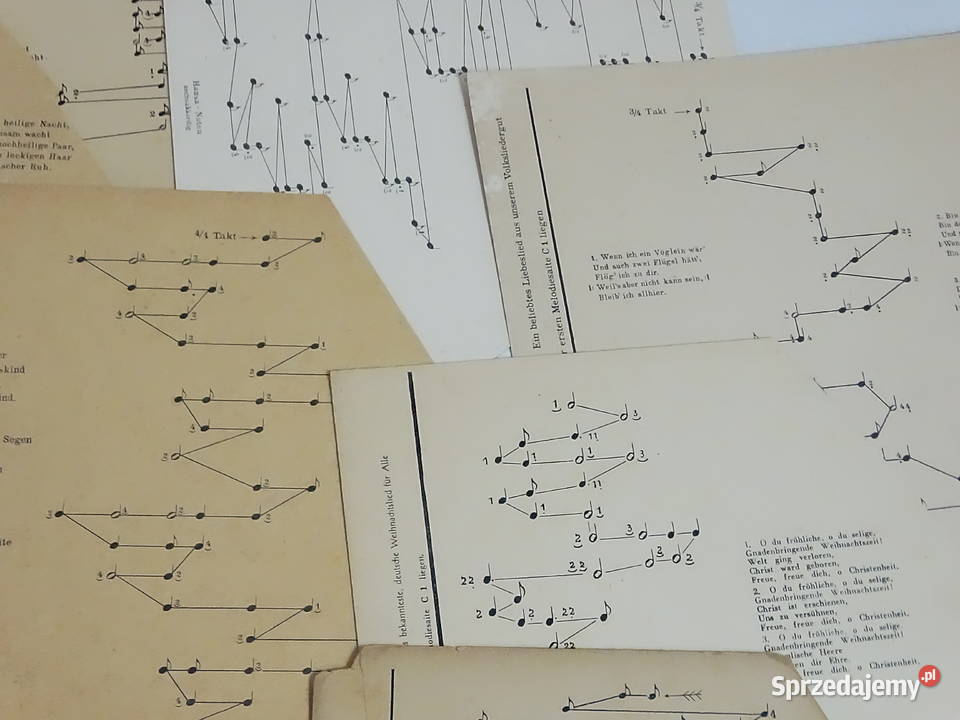 heilige Nacht,
sam wacht
hochheilige Paar,
lockigen Haar
scher Ruh.
Hansa - Noten
3/4 Takt
4/4 Takt
kind
ind.
Segen
Ein beliebtes Liebeslied aus unserem Volksliedergut
r ersten Melodiesaite C 1 liegen
3/4 Takt
1. Wenn ich ein Vöglein wär'
Und auch zwei Flügel hätt',
Flög' ich zu dir.
Weil's aber nicht kann sein,
Bleib' ich allhier.
2. Bin
Bin de
Und
Wen
bekannteste, deutsche Weihnachtslied für Alle
lodiesaite C 1 liegen.
1. O du fröhliche, o du selige,
Gnadenbringende Weihnachtszeit!
Welt ging verloren,
Christ ward geboren,
Freue, freue dich, o Christenheit.
2. O du fröhliche, o du selige,
Gnadenbringende Weihnachtszeit!
Christ ist erschienen,
Uns zu versühnen,
Freue, freue dich, o Christenheit.
3. O du fröhliche, o du selige,
Gnadenbringende Weihnachtszeit!
lische Heere
en dir Ehre.
freue dich, o Christenheit,
Sprzedajemy.pl